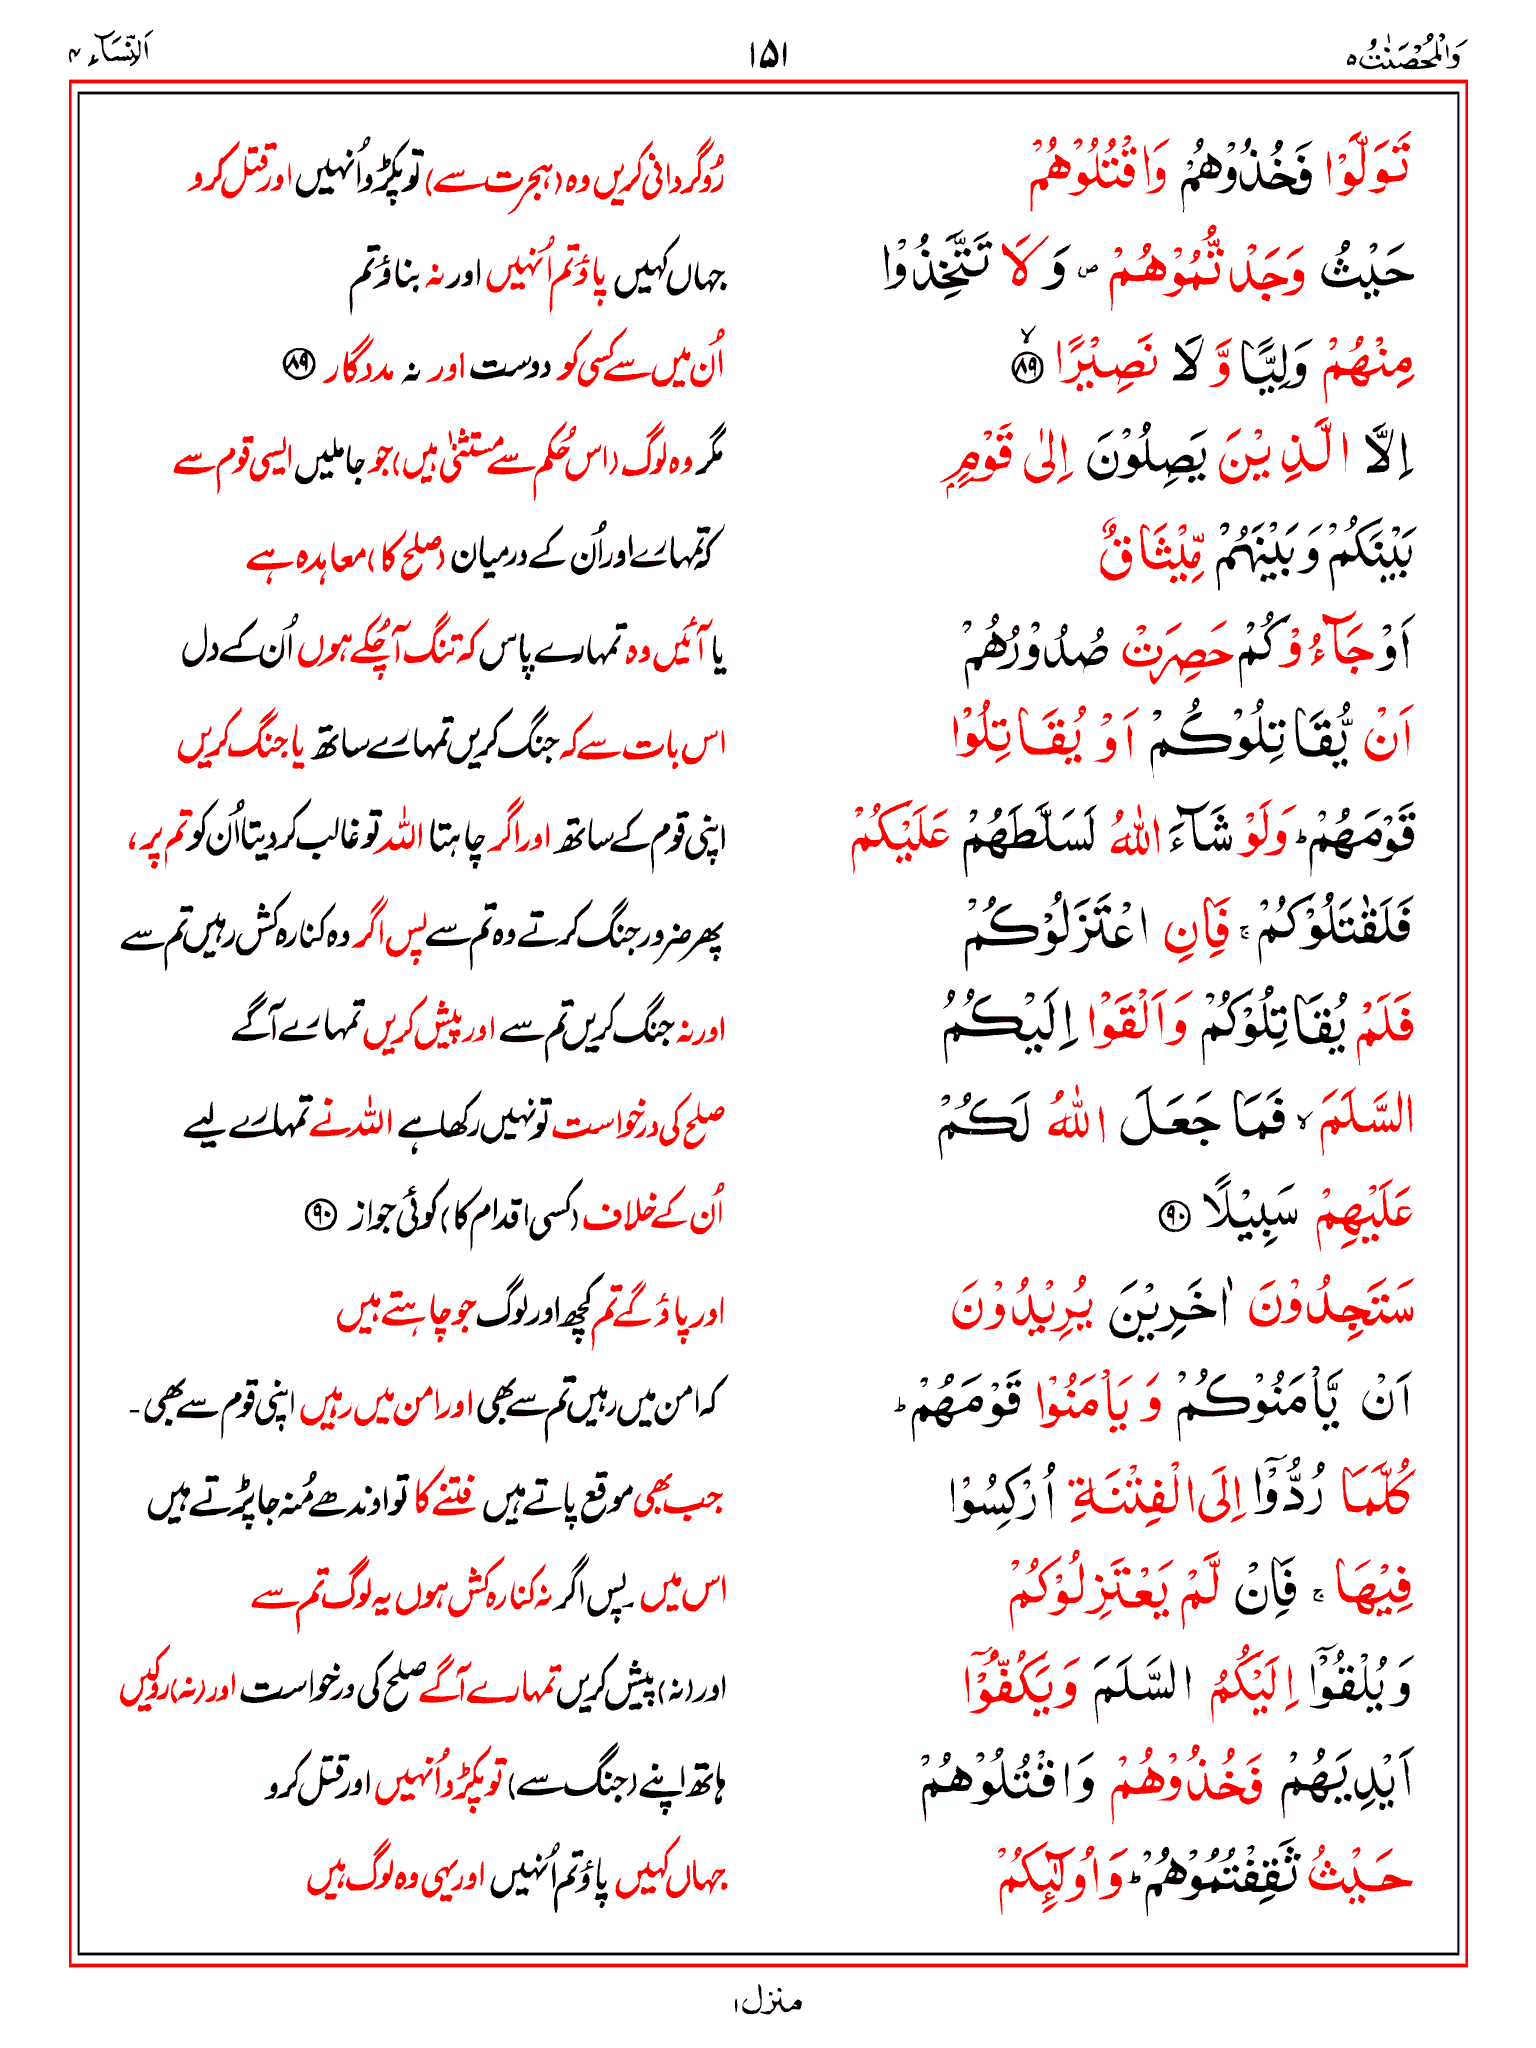 وَالْمُحْصَنٰتُ ۵ ۱۵۱ اَلنِّسَآء ۴
تَوَلَّوْا فَخُذُوْهُمْ وَاقْتُلُوْهُمْ رُوگردانی کریں وہ (ہجرت سے) تو پکڑو اُنہیں اور قتل کرو
حَيْثُ وَجَدْتُّمُوْهُمْ ۠ وَلَا تَتَّخِذُوْا جہاں کہیں پاؤ تم اُنہیں اور نہ بناؤ تم
مِنْهُمْ وَلِيًّا وَّلَا نَصِيْرًا ۙ ﴿۸۹﴾ اُن میں سے کسی کو دوست اور نہ مددگار ﴿۸۹﴾
اِلَّا الَّذِيْنَ يَصِلُوْنَ اِلٰى قَوْمٍۭ مگر وہ لوگ (اس حُکم سے مستثنیٰ ہیں) جو جاملیں ایسی قوم سے
بَيْنَكُمْ وَبَيْنَهُمْ مِّيْثَاقٌ کہ تمہارے اور اُن کے درمیان (صلح کا) معاہدہ ہے
اَوْ جَآءُوْكُمْ حَصِرَتْ صُدُوْرُهُمْ یا آئیں وہ تمہارے پاس کہ تنگ آچُکے ہوں اُن کے دل
اَنْ يُّقَاتِلُوْكُمْ اَوْ يُقَاتِلُوْا اس بات سے کہ جنگ کریں تمہارے ساتھ یا جنگ کریں
قَوْمَهُمْ ؕ وَلَوْ شَآءَ اللّٰهُ لَسَلَّطَهُمْ عَلَيْكُمْ اپنی قوم کے ساتھ اور اگر چاہتا اللہ تو غالب کردیتا اُن کو تم پر،
فَلَقٰتَلُوْكُمْ ۚ فَاِنِ اعْتَزَلُوْكُمْ پھر ضرور جنگ کرتے وہ تم سے پس اگر وہ کنارہ کش رہیں تم سے
فَلَمْ يُقَاتِلُوْكُمْ وَاَلْقَوْا اِلَيْكُمُ اور نہ جنگ کریں تم سے اور پیش کریں تمہارے آگے
السَّلَمَ ۙ فَمَا جَعَلَ اللّٰهُ لَكُمْ صلح کی درخواست تو نہیں رکھا ہے اللہ نے تمہارے لیے
عَلَيْهِمْ سَبِيْلًا ﴿۹۰﴾ اُن کے خلاف (کسی اقدام کا) کوئی جواز ﴿۹۰﴾
سَتَجِدُوْنَ اٰخَرِيْنَ يُرِيْدُوْنَ اور پاؤ گے تم کچھ اور لوگ جو چاہتے ہیں
اَنْ يَّاْمَنُوْكُمْ وَيَاْمَنُوْا قَوْمَهُمْ ؕ کہ امن میں رہیں تم سے بھی اور امن میں رہیں اپنی قوم سے بھی۔
كُلَّمَا رُدُّوْۤا اِلَى الْفِتْنَةِ اُرْكِسُوْا جب بھی موقع پاتے ہیں فتنے کا تو اوندھے مُنہ جا پڑتے ہیں
فِيْهَا ۚ فَاِنْ لَّمْ يَعْتَزِلُوْكُمْ اس میں۔ پس اگر نہ کنارہ کش ہوں یہ لوگ تم سے
وَيُلْقُوْۤا اِلَيْكُمُ السَّلَمَ وَيَكُفُّوْۤا اور (نہ) پیش کریں تمہارے آگے صلح کی درخواست اور (نہ) روکیں
اَيْدِيَهُمْ فَخُذُوْهُمْ وَاقْتُلُوْهُمْ ہاتھ اپنے (جنگ سے) تو پکڑو اُنہیں اور قتل کرو
حَيْثُ ثَقِفْتُمُوْهُمْ ؕ وَاُولٰٓئِكُمْ جہاں کہیں پاؤ تم اُنہیں اور یہی وہ لوگ ہیں
منزل ۱